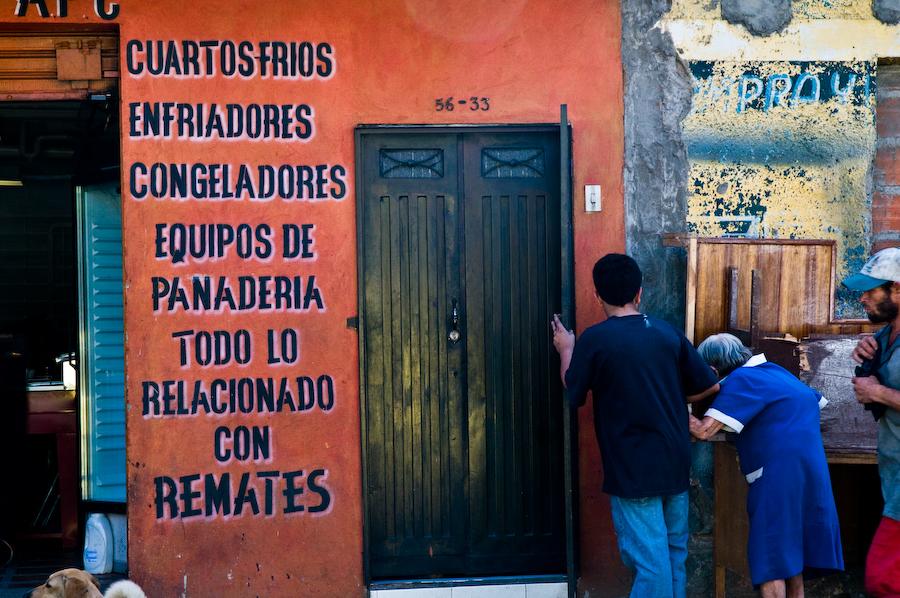 CUARTOSFRIOS
ENFRIADORES
CONGELADORES
EQUIPOS DE
PANADERIA
TODO LO
RELACIONADO
CON
REMATES
56-33